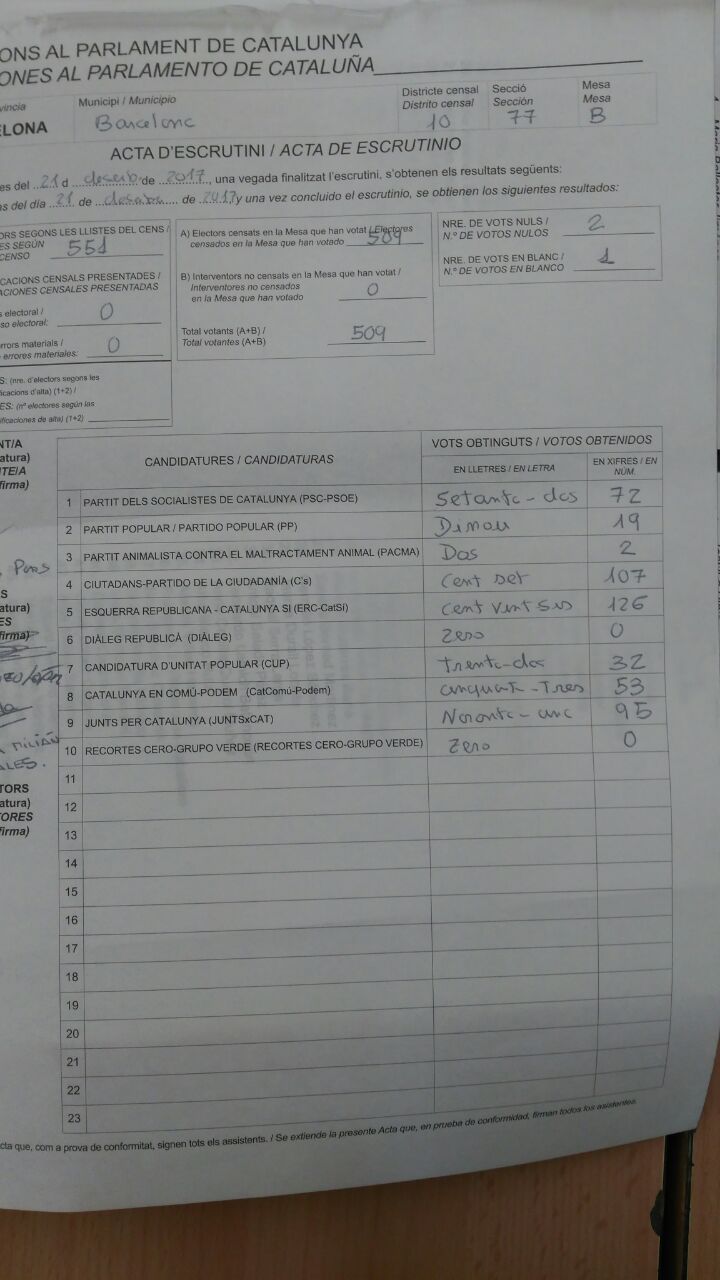 ONS AL PARLAMENT DE CATALUNYA
ONES AL PARLAMENTO DE CATALUÑA
víncia Municipi / Municipio Districte censal Secció Mesa
Distrito censal Sección Mesa
ELONA Barcelona 10 77 B
ACTA D'ESCRUTINI / ACTA DE ESCRUTINIO
es del 21 d desemb. de 2017, una vegada finalitzat l'escrutini, s'obtenen els resultats següents:
s del día 21 de de 2017 y una vez concluido el escrutinio, se obtienen los siguientes resultados:
ORS SEGONS LES LLISTES DEL CENS /
ES SEGÚN
CENSO 551
CACIONS CENSALS PRESENTADES /
ACIONES CENSALES PRESENTADAS
s electoral /
so electoral: 0
rrors materials /
errores materiales: 0
S: (nre. d'electors segons les
ificacions d'alta) (1+2) /
ES: (nº electores según las
ificaciones de alta) (1+2)
A) Electors censats en la Mesa que han votat / Electores
censados en la Mesa que han votado 509
B) Interventors no censats en la Mesa que han votat /
Interventores no censados
en la Mesa que han votado 0
Total votants (A+B) /
Total votantes (A+B) 509
NRE. DE VOTS NULS /
N.º DE VOTOS NULOS 2
NRE. DE VOTS EN BLANC /
N.º DE VOTOS EN BLANCO 1
NT/A
atura)
NTE/A
firma)
Pons
S
atura)
ES
firma)
TORS
atura)
TORES
firma)
CANDIDATURES / CANDIDATURAS VOTS OBTINGUTS / VOTOS OBTENIDOS
EN LLETRES / EN LETRA EN XIFRES / EN NÚM.
1 PARTIT DELS SOCIALISTES DE CATALUNYA (PSC-PSOE) Setanta-dos 72
2 PARTIT POPULAR / PARTIDO POPULAR (PP) Dinou 19
3 PARTIT ANIMALISTA CONTRA EL MALTRACTAMENT ANIMAL (PACMA) Dos 2
4 CIUTADANS-PARTIDO DE LA CIUDADANÍA (C's) Cent set 107
5 ESQUERRA REPUBLICANA - CATALUNYA SI (ERC-CatSí) Cent vint sis 126
6 DIÀLEG REPUBLICÀ (DIÀLEG) Zero 0
7 CANDIDATURA D'UNITAT POPULAR (CUP) Trenta-dos 32
8 CATALUNYA EN COMÚ-PODEM (CatComú-Podem) Cinquanta-Tres 53
9 JUNTS PER CATALUNYA (JUNTSxCAT) Noranta-cinc 95
10 RECORTES CERO-GRUPO VERDE (RECORTES CERO-GRUPO VERDE) Zero 0
11
12
13
14
15
16
17
18
19
20
21
22
23
cta que, com a prova de conformitat, signen tots els assistents. / Se extiende la presente Acta que, en prueba de conformidad, firman todos los asistentes.